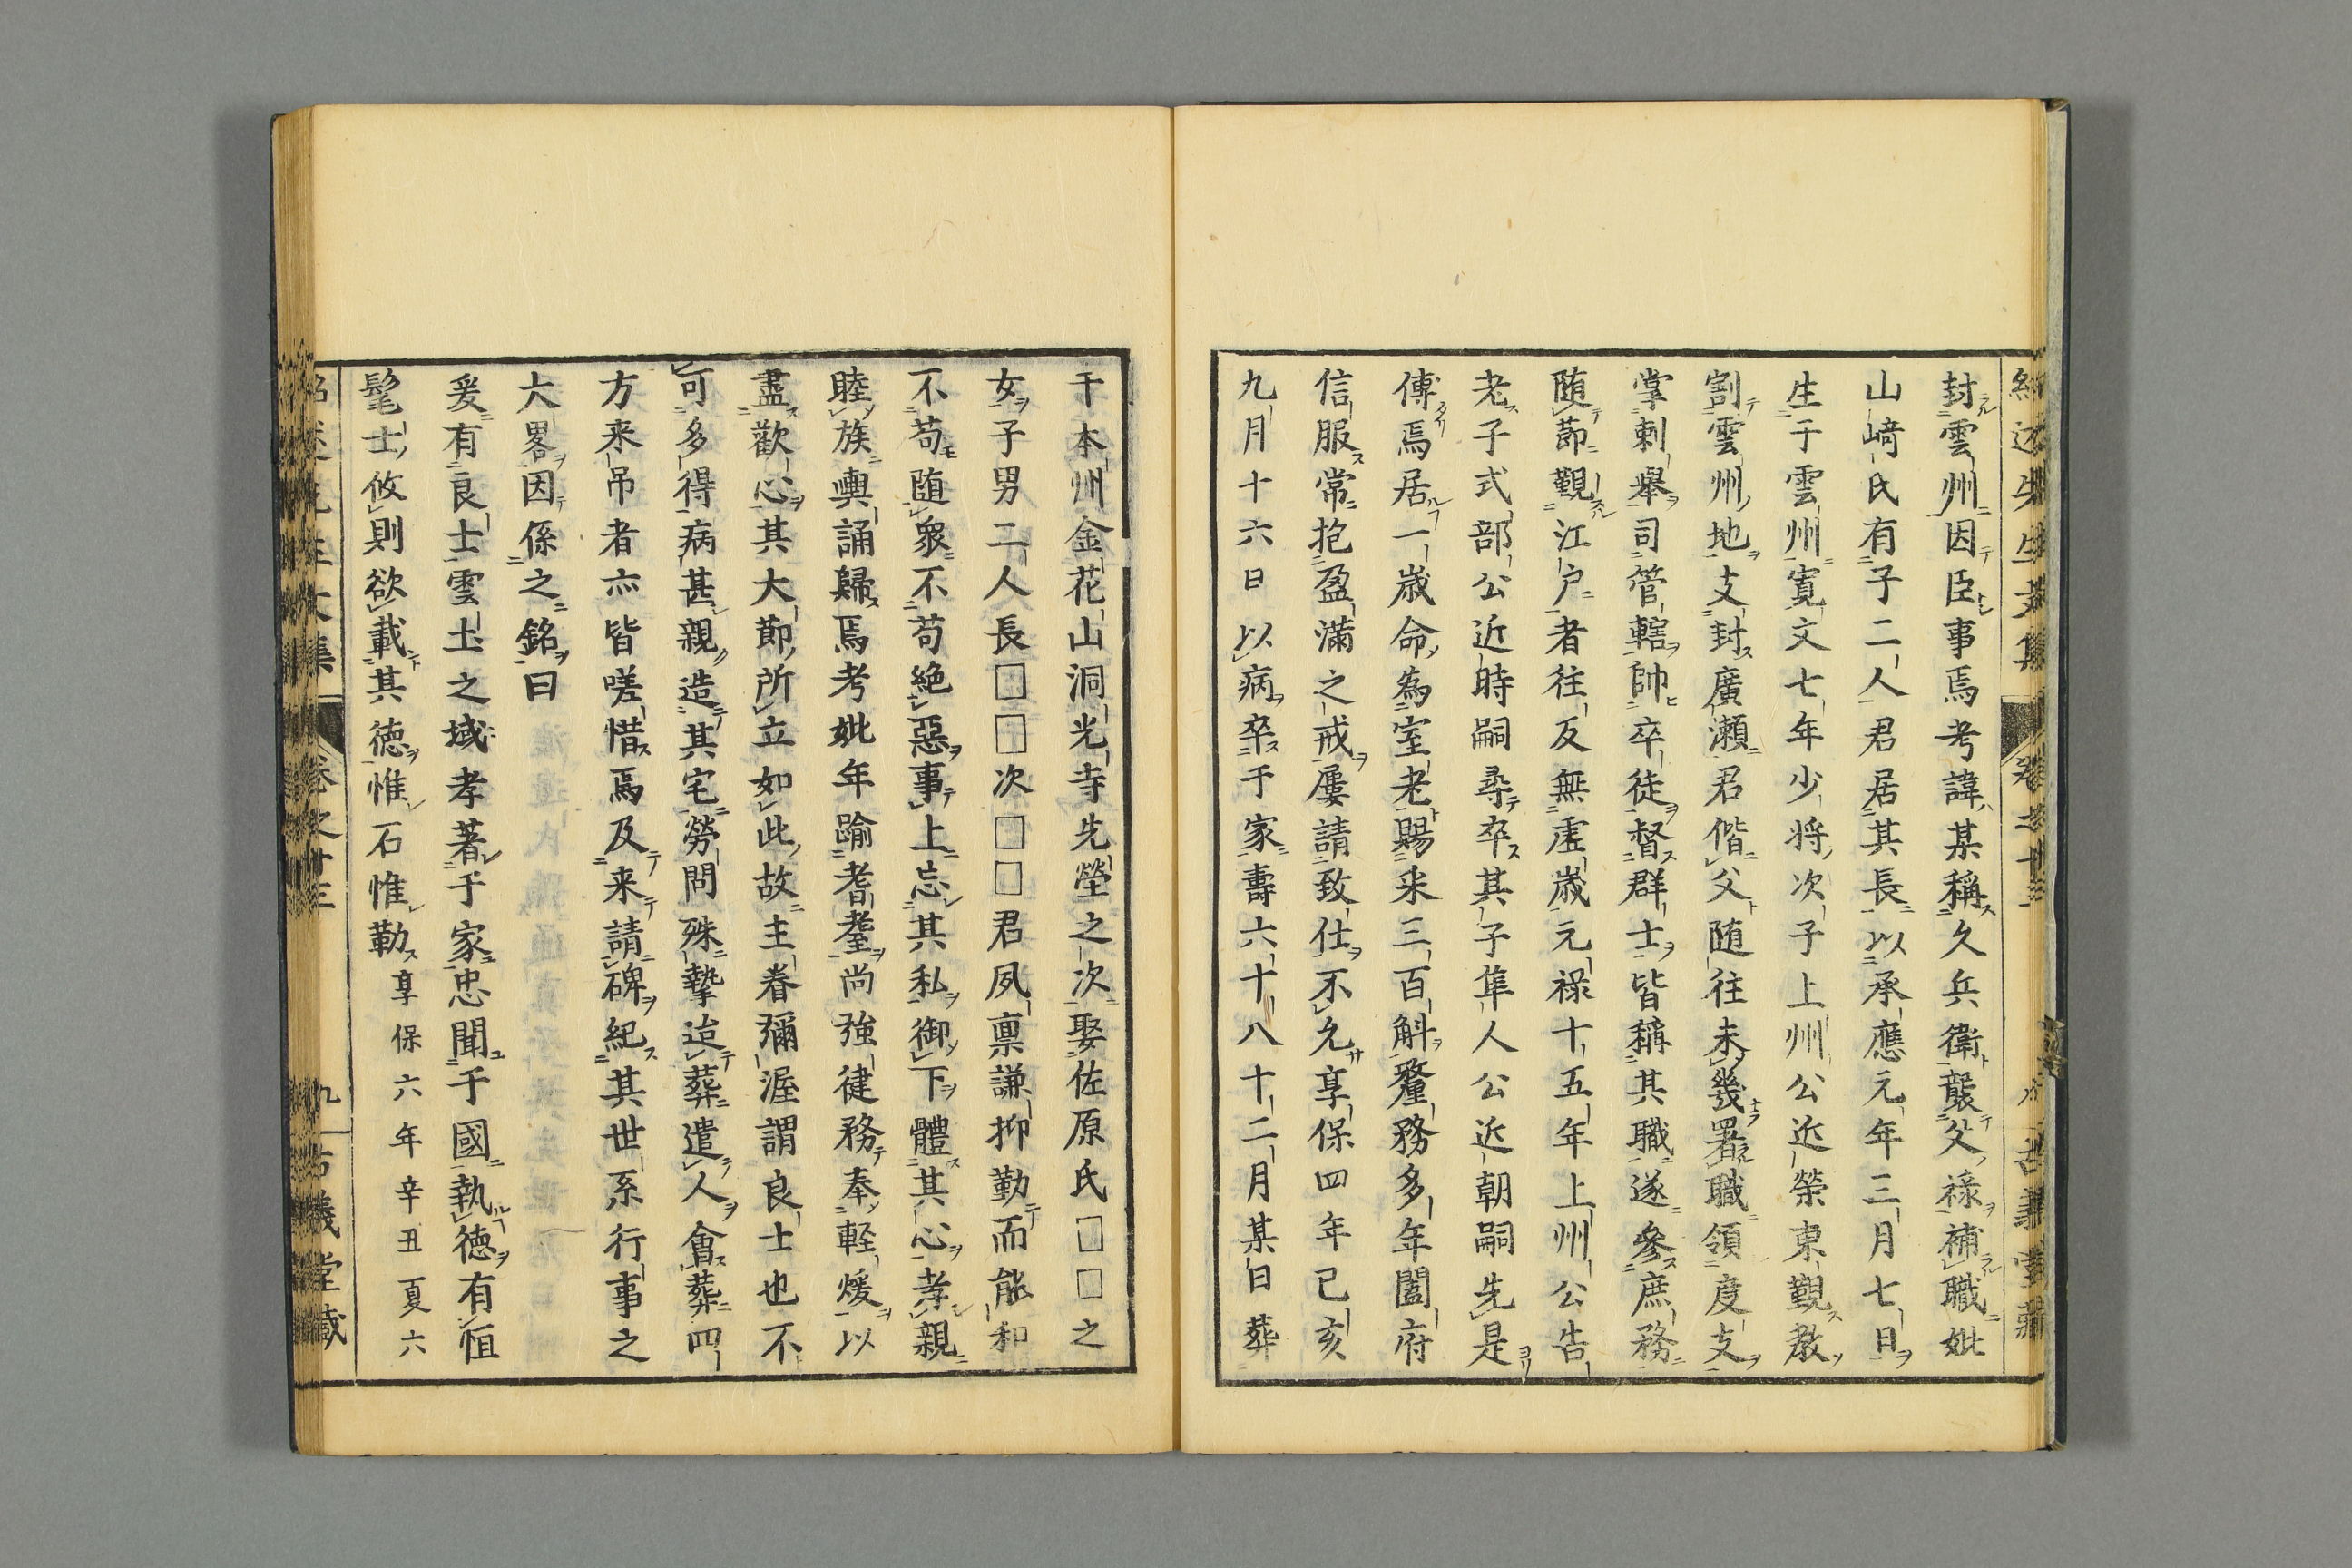 封雲州因臣事焉考諱某稱久兵衛襲父祿補職妣
山﨑氏有子二人君居其長以承應元年三月七日
生于雲州寬文七年少将次子上州公近榮東覲教
割雲州地支封廣瀬君偕父随往未幾署職領度支
掌剌舉司管轄帥卒徒督群士皆稱其職遂參庶務
随莭覲江户者往反無虚歳元禄十五年上州公告
老子式部公近時嗣尋卒其子隼人公近朝嗣先是
傅焉居一歳命為室老賜采三百斛釐務多年闔府
信服常抱盈滿之戒屢請致仕不允享保四年己亥
九月十六日以病卒于家壽六十八十二月某日葬
于本州金花山洞光寺先塋之次娶佐原氏□□之
女子男二人長□□次□□君夙禀謙抑勤而能和
不苟随衆不苟絶惡事上忘其私御下體其心孝親
睦族輿誦歸焉考妣年踰耆耋尚強健務奉軽煖以
盡歡心其大節所立如此故主眷彌渥謂良士也不
可多得病甚親造其宅勞問殊摯迨葬遣人會葬四
方来吊者亦皆嗟惜焉及来請碑紀其世系行事之
大畧因係之銘曰
爰有良士雲土之域孝著于家忠聞于國執德有恒
髦士攸則欲載其徳惟石惟勒 享保六年辛丑夏六
卷之廿三
九 古義堂藏